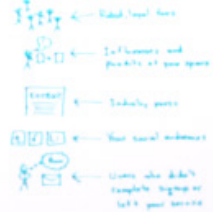 Rabid, loyal fans
Influencers and
pundits of your space
Industry press
Your social audiences
Users who didn't
complete signup or
left your service